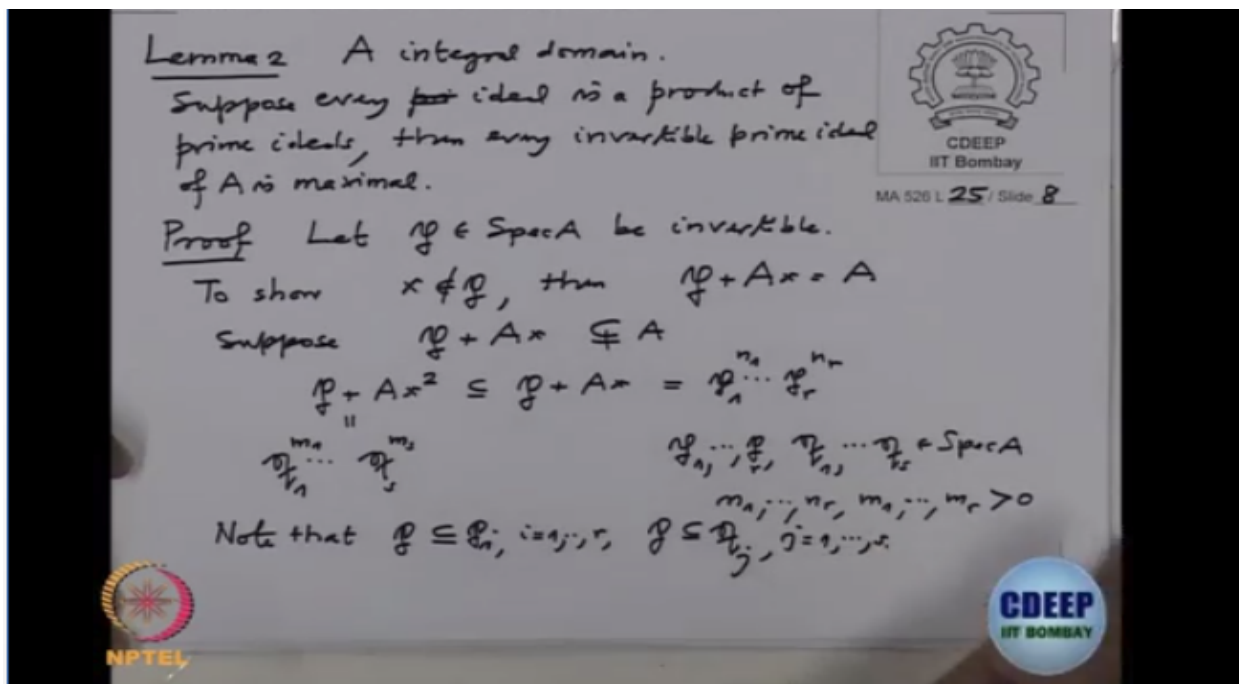 Lemma 2 A integral domain.
Suppose every ideal is a product of
prime ideals, then every invertible prime ideal
of A is maximal.
CDEEP
IIT Bombay
MA 526 L 25 / Slide 8
Proof Let 𝔭 ∈ Spec A be invertible.
To show x ∉ 𝔭, then 𝔭 + Ax = A
Suppose 𝔭 + Ax ⊊ A
𝔭 + Ax² ⊆ 𝔭 + Ax = 𝔭₁^{n₁} ⋯ 𝔭ᵣ^{nᵣ}
||
𝔮₁^{m₁} ⋯ 𝔮ₛ^{mₛ}
𝔭₁, ⋯, 𝔭ᵣ, 𝔮₁, ⋯ 𝔮ₛ ∈ Spec A
n₁, ⋯, nᵣ, m₁, ⋯, mᵣ > 0
Note that 𝔭 ⊆ 𝔭ᵢ, i=1,⋯,r, 𝔭 ⊆ 𝔮ⱼ, j=1,⋯,s.
NPTEL
CDEEP
IIT BOMBAY